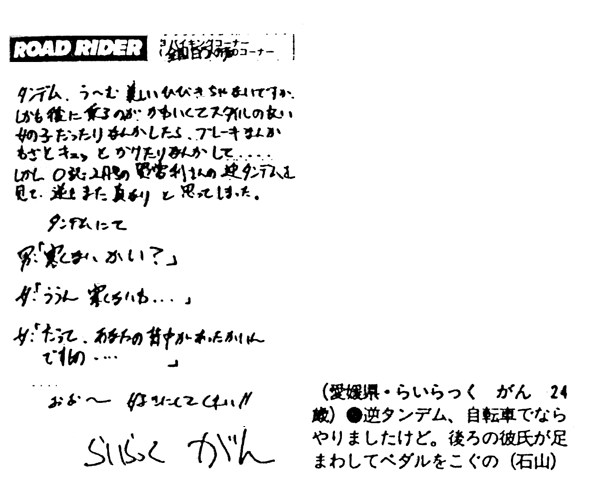 ROAD RIDER
バイキングコーナー
コーナー
タンデム、う〜む美しいひびきぢゃないですか。
しかも後に乗るのが かわいくてスタイルの良い
女の子だったりなんかしたら、ブレーキなんか
わざとキュッとかけたりなんかして.....
しかし ○誌2月号の 逆タンデムを
見て、逆もまた真なり と思ってしまった。
タンデムにて
男:「寒くない かい?」
女:「ううん 寒くないわ...」
女:「だって、あなたの背中があったかいん
ですもの...」
おお〜 好きにしてくれい!!
らいらっく がん
(愛媛県・らいらっく がん 24
歳)●逆タンデム、自転車でなら
やりましたけど。後ろの彼氏が足
まわしてペダルをこぐの(石山)